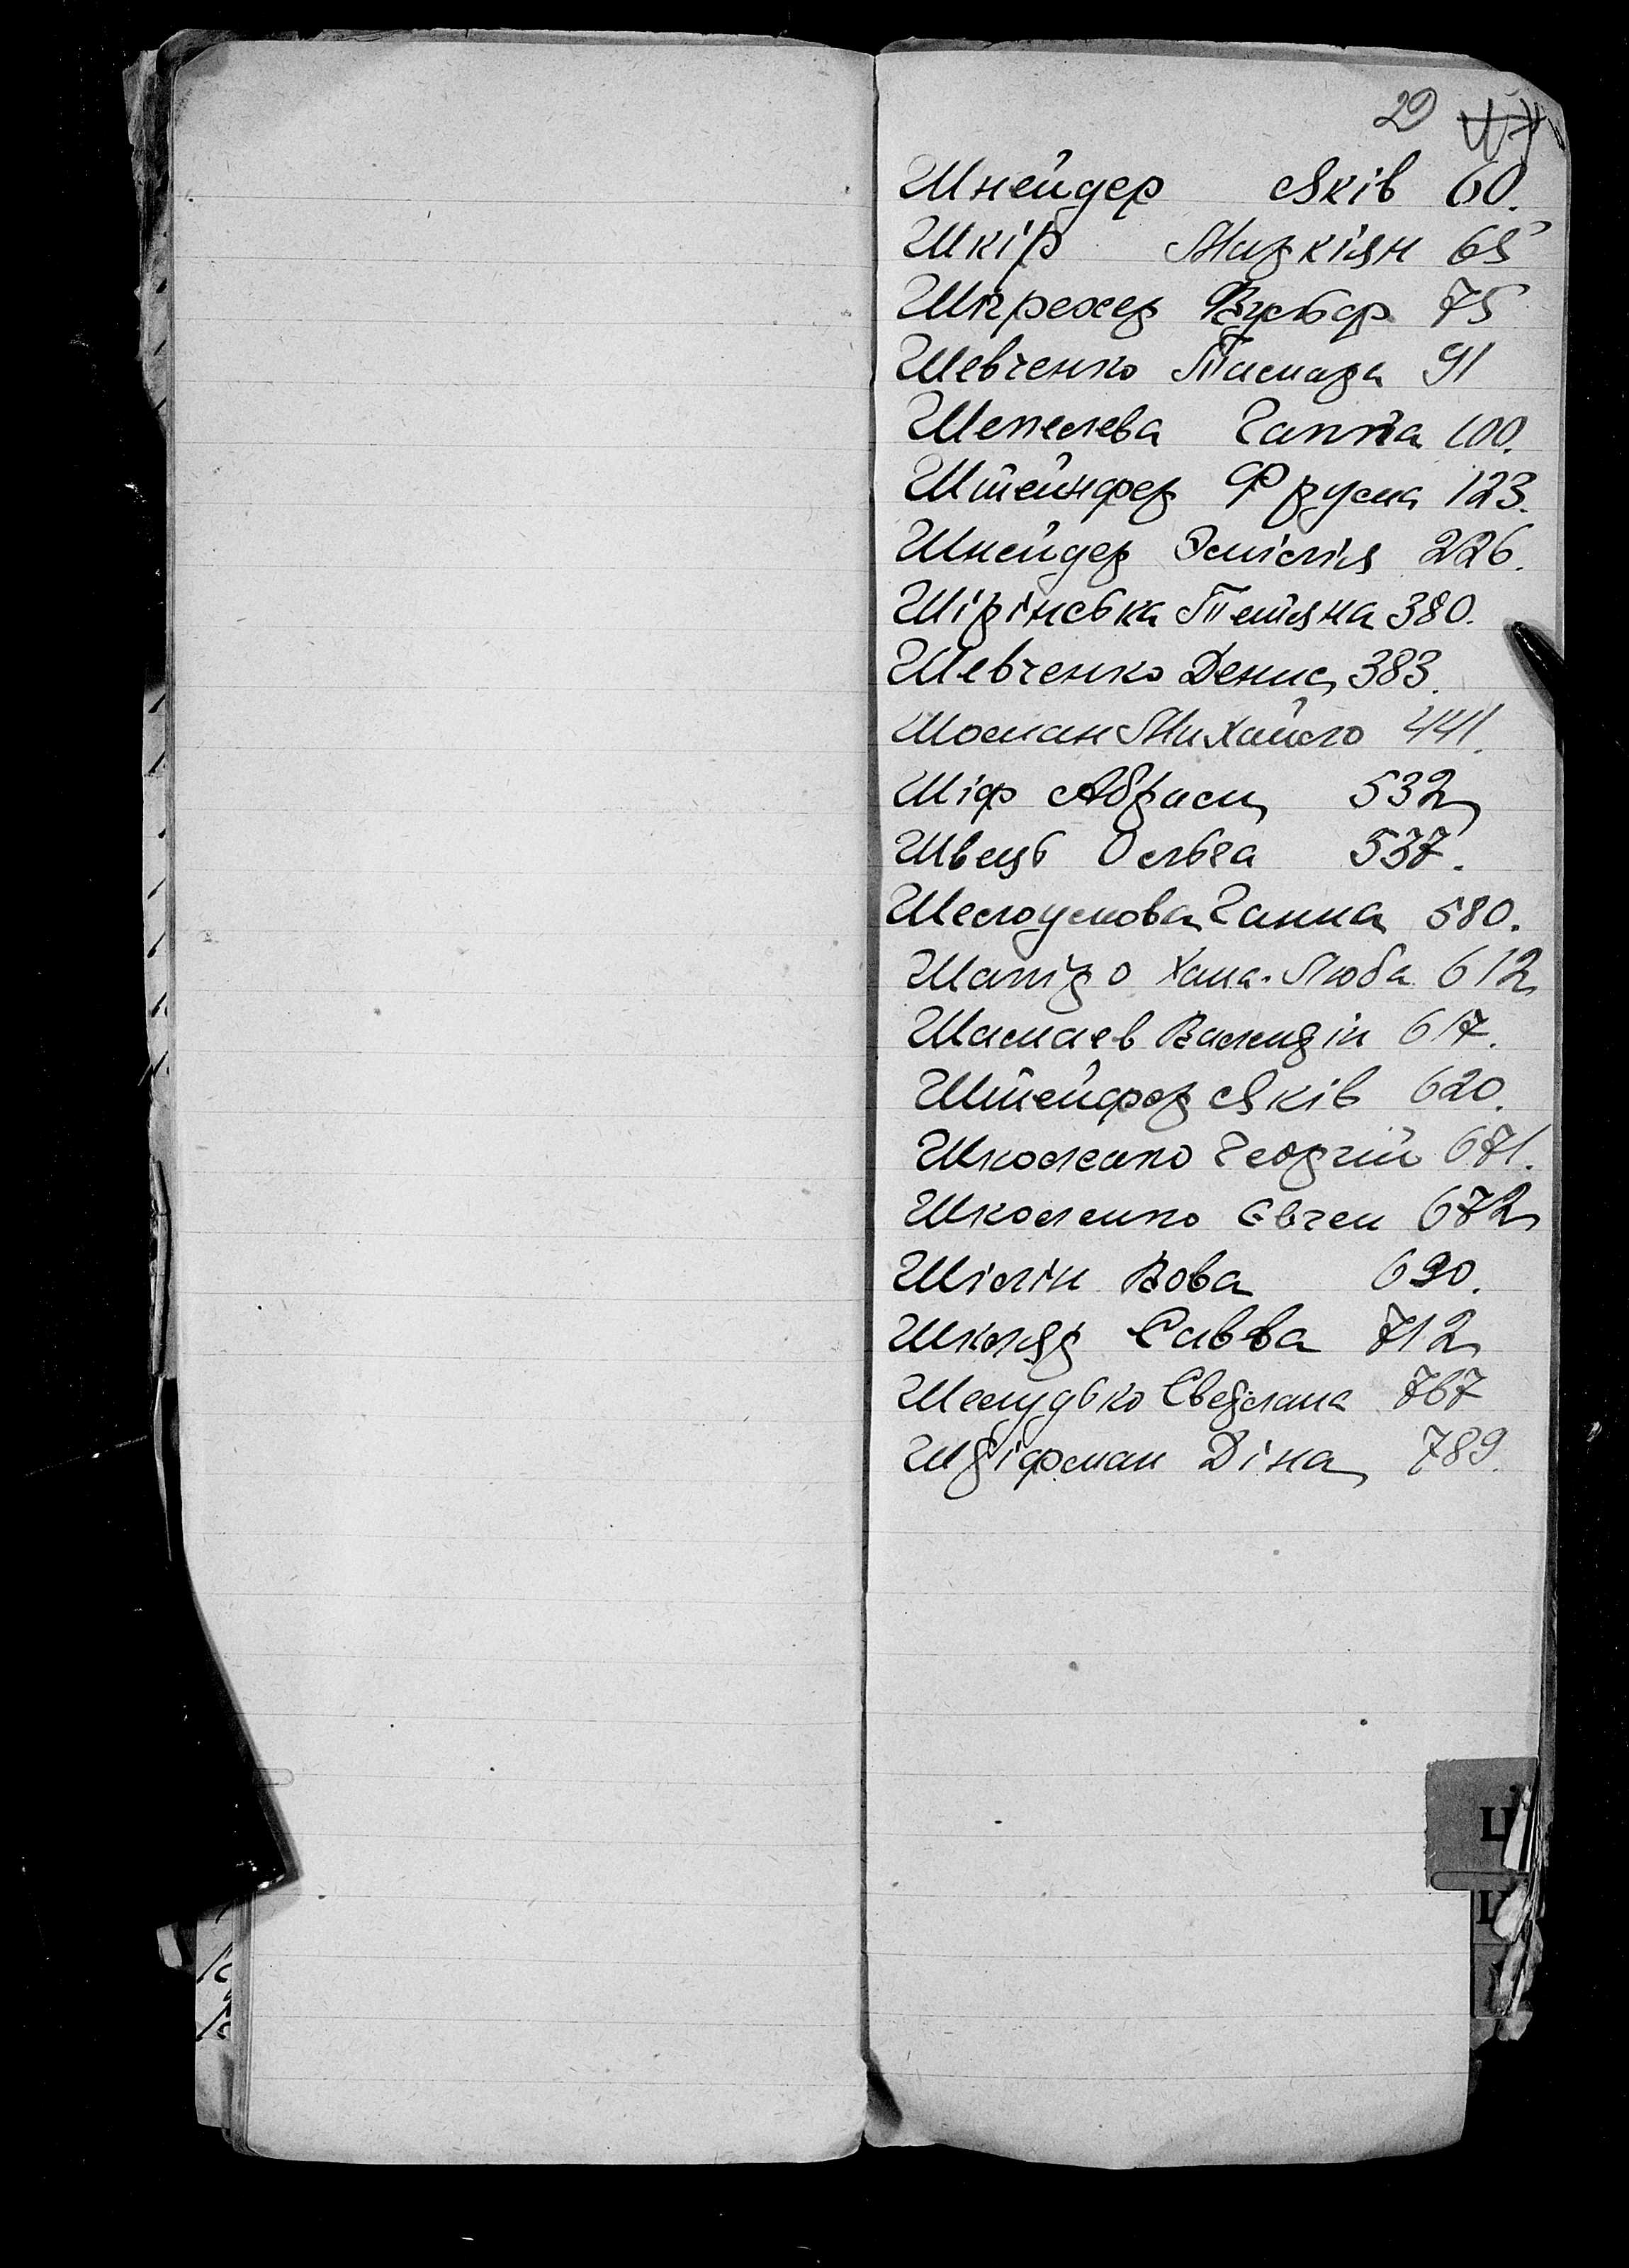 29
Шнейдер Яків 60.
Шкір Маркіян 65
Шпрехер Вульф 75
Шевченко Тамара 91
Шепелева Ганна 100.
Штейнфер Фрума 123.
Шнейдер Эмілія 226.
Шірінська Тетяна 380.
Шевченко Денис 383.
Шоман Михайло 441.
Шіф Абрам 532
Швець Ольга 537.
Шелоумова Ганна 580.
Шапіро Хана-Люба 612
Шамаев 617.
Штейфер Яків 620.
Школенко Георгій 671.
Школенко Євген 672
Шілін Вова 690.
Шкляр Савва 712
Шелудько Светлана 767
Шріфман Діна 789.